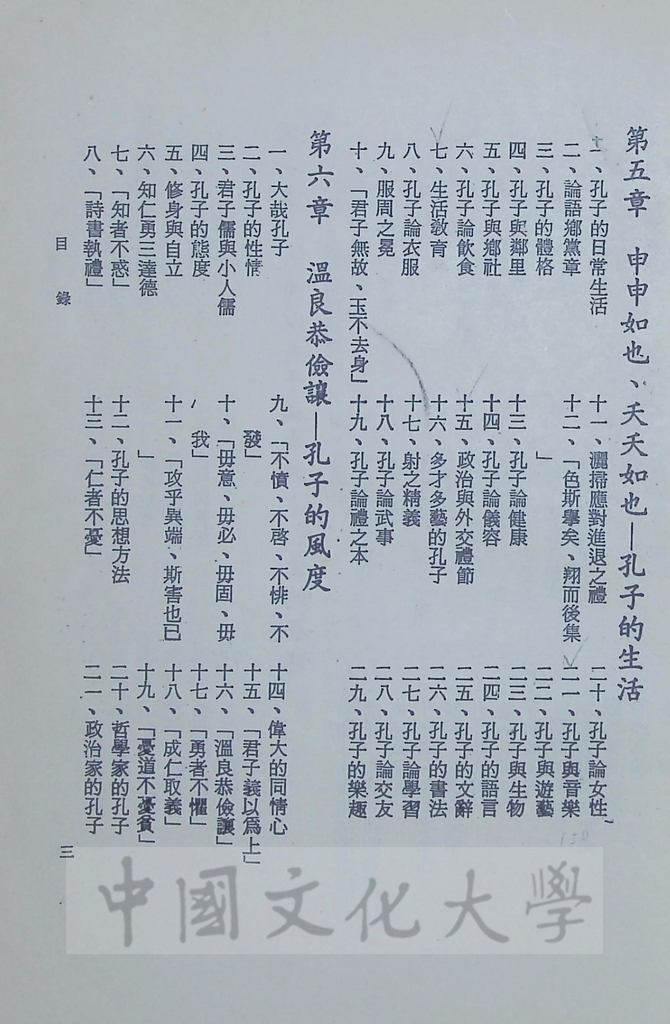 第五章　申申如也、夭夭如也—孔子的生活
一、孔子的日常生活
二、論語鄉黨章
三、孔子的體格
四、孔子與鄰里
五、孔子與鄉社
六、孔子論飲食
七、生活教育
八、孔子論衣服
九、服周之冕
十、「君子無故、玉不去身」
十一、灑掃應對進退之禮
十二、「色斯擧矣、翔而後集
」
十三、孔子論健康
十四、孔子論儀容
十五、政治與外交禮節
十六、多才多藝的孔子
十七、射之精義
十八、孔子論武事
十九、孔子論禮之本
二十、孔子論女性
二一、孔子與音樂
二二、孔子與遊藝
二三、孔子與生物
二四、孔子的語言
二五、孔子的文辭
二六、孔子的書法
二七、孔子論學習
二八、孔子論交友
二九、孔子的樂趣
第六章　溫良恭儉讓—孔子的風度
一、大哉孔子
二、孔子的性情
三、君子儒與小人儒
四、孔子的態度
五、修身與自立
六、知仁勇三達德
七、「知者不惑」
八、「詩書執禮」
九、「不憤、不啓、不悱、不
發」
十、「毋意、毋必、毋固、毋
我」
十一、「攻乎異端、斯害也已
」
十二、孔子的思想方法
十三、「仁者不憂」
十四、偉大的同情心
十五、「君子義以爲上」
十六、「溫良恭儉讓」
十七、「勇者不懼」
十八、「成仁取義」
十九、「憂道不憂貧」
二十、哲學家的孔子
二一、政治家的孔子
目錄
三
中國文化大學